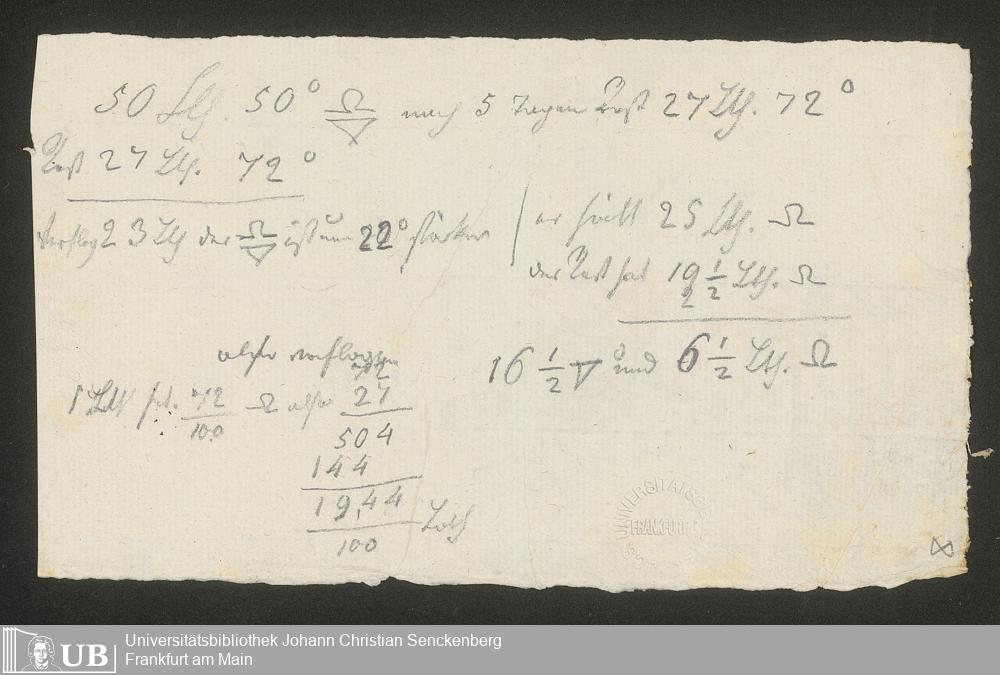 50 Lth. 50° ♎︎▽ nach 5 Tagen Rest 27 Lth. 72°
Rest 27 Lth. 72°
verflog 23 Lth der ♎︎▽ ist um 22° stärker
er hielt 25 Lth. ♎︎
der Rest hat 19 1/2 Lth. ♎︎
also verflogen
16 1/2 ▽ und 6 1/2 Lth. ♎︎
1 Lth hat 72/100 ♎︎ also 27
504
144
19,44 Loth
100
UNIVERSITÄTSB
FRANKFURT
UB
Universitätsbibliothek Johann Christian Senckenberg
Frankfurt am Main